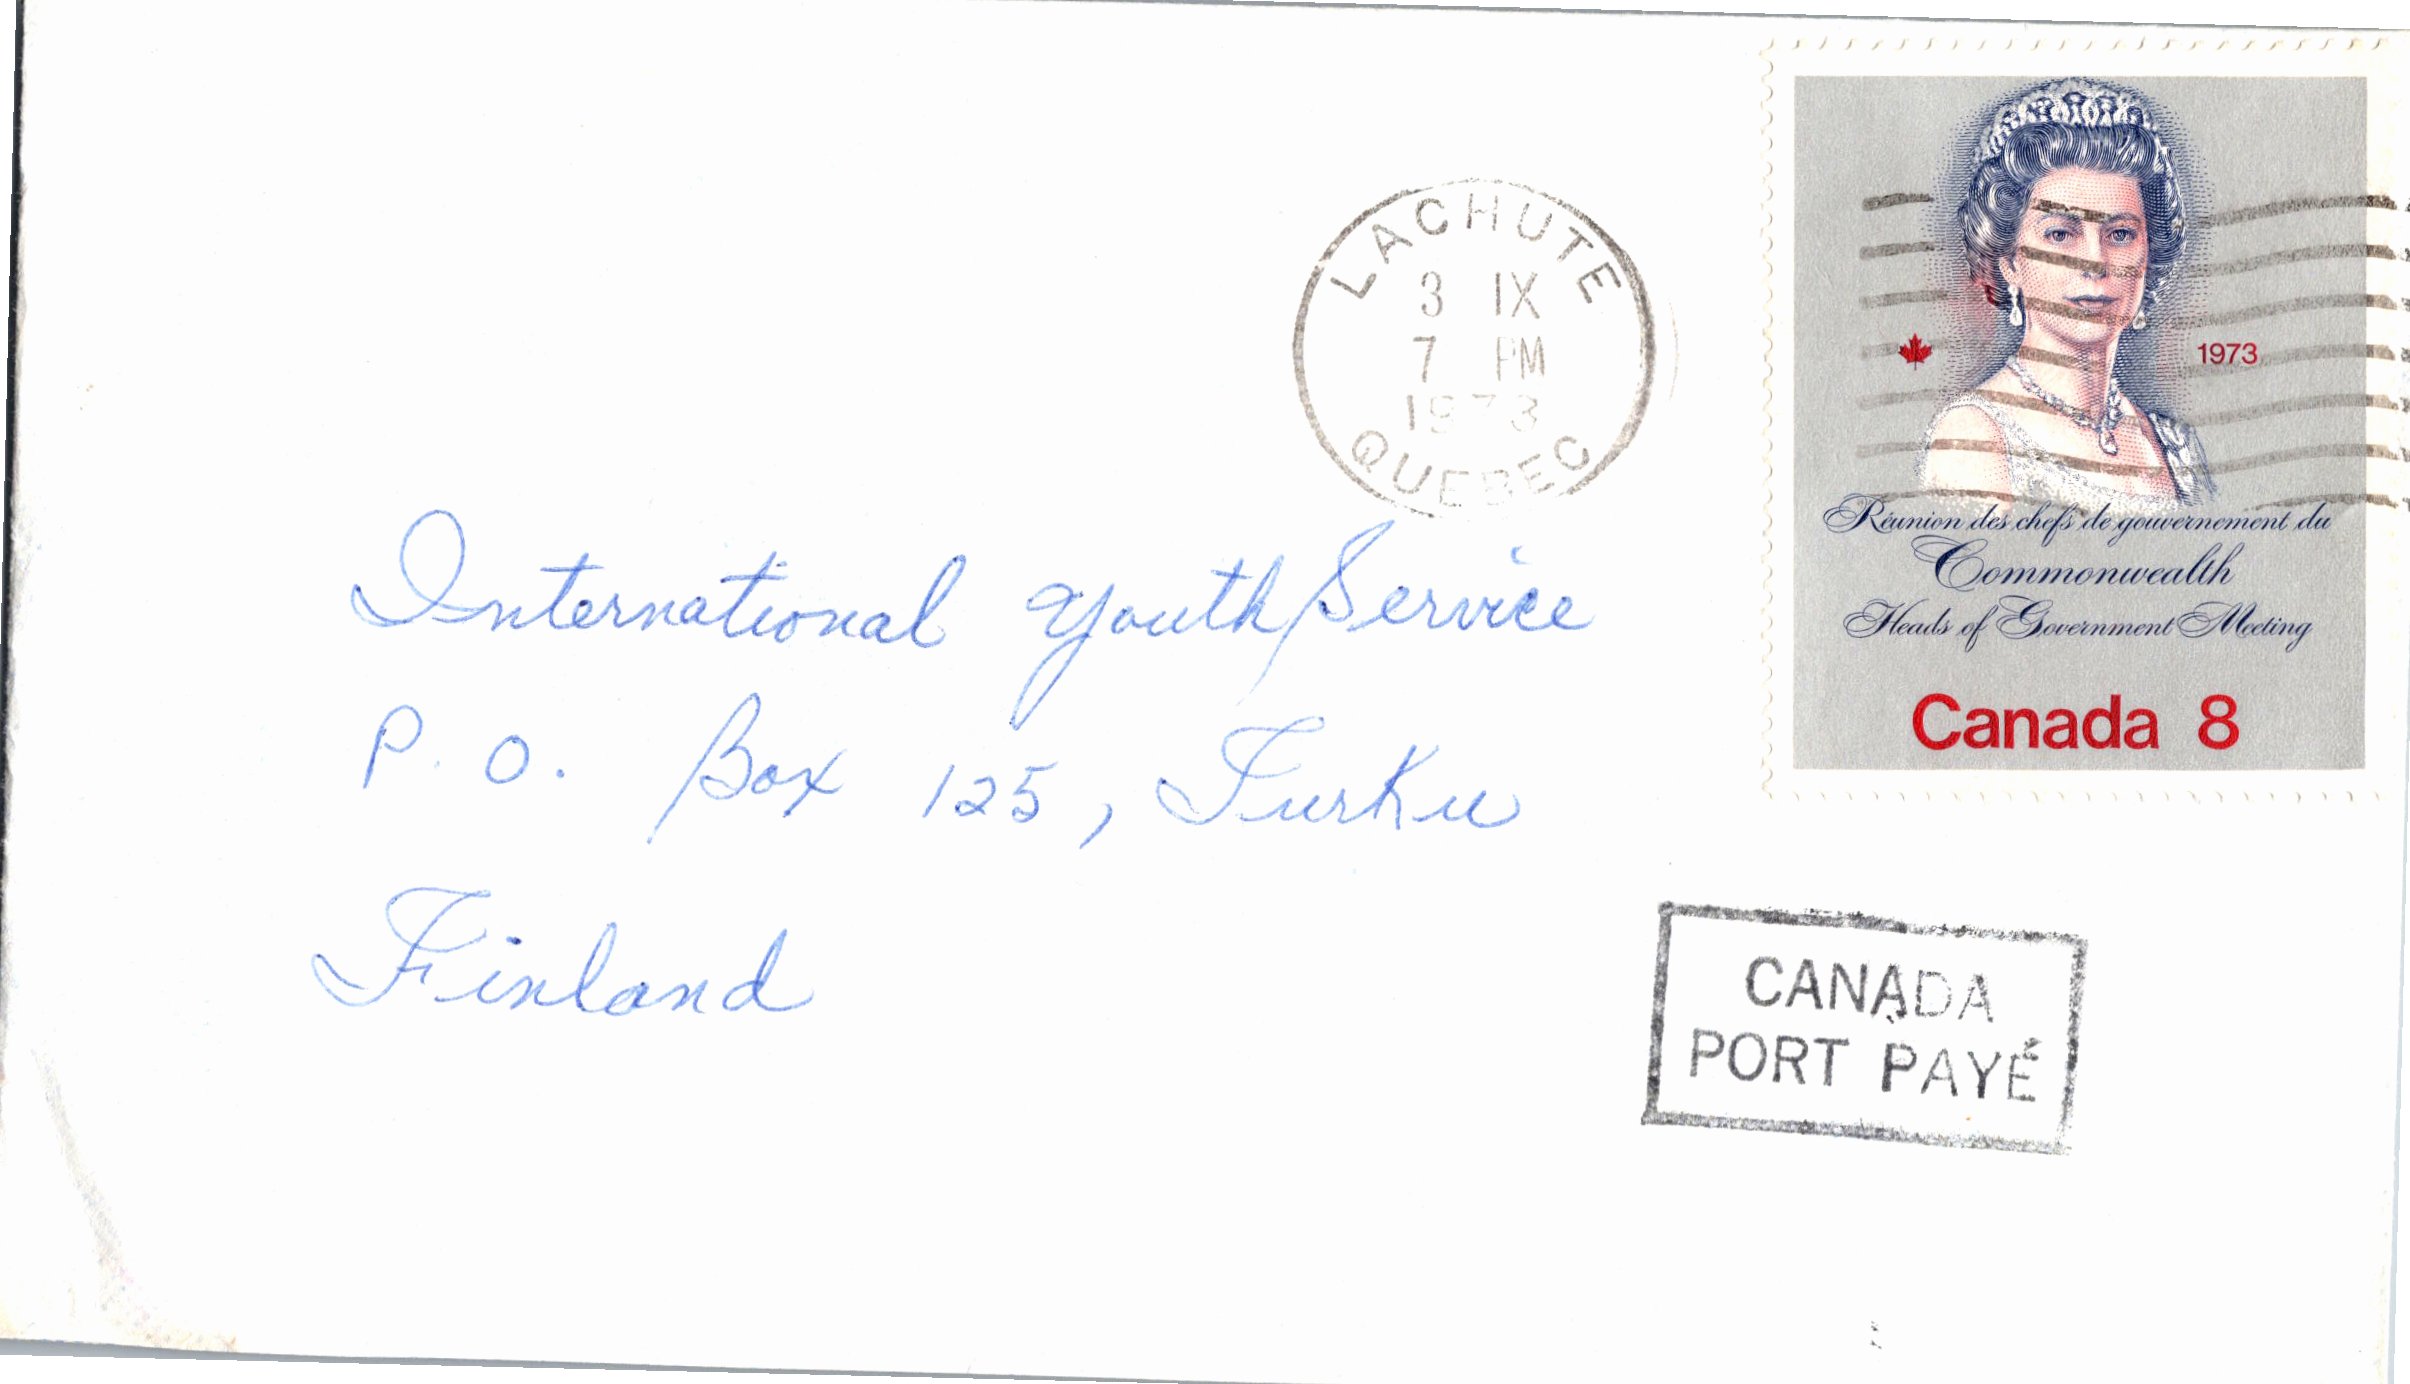 LACHUTE
3 IX
7 PM
1973
QUEBEC
1973
Réunion des chefs de gouvernement du
Commonwealth
Heads of Government Meeting
Canada 8
International Youth Service
P. O. Box 125, Turku
Finland
CANADA
PORT PAYÉ